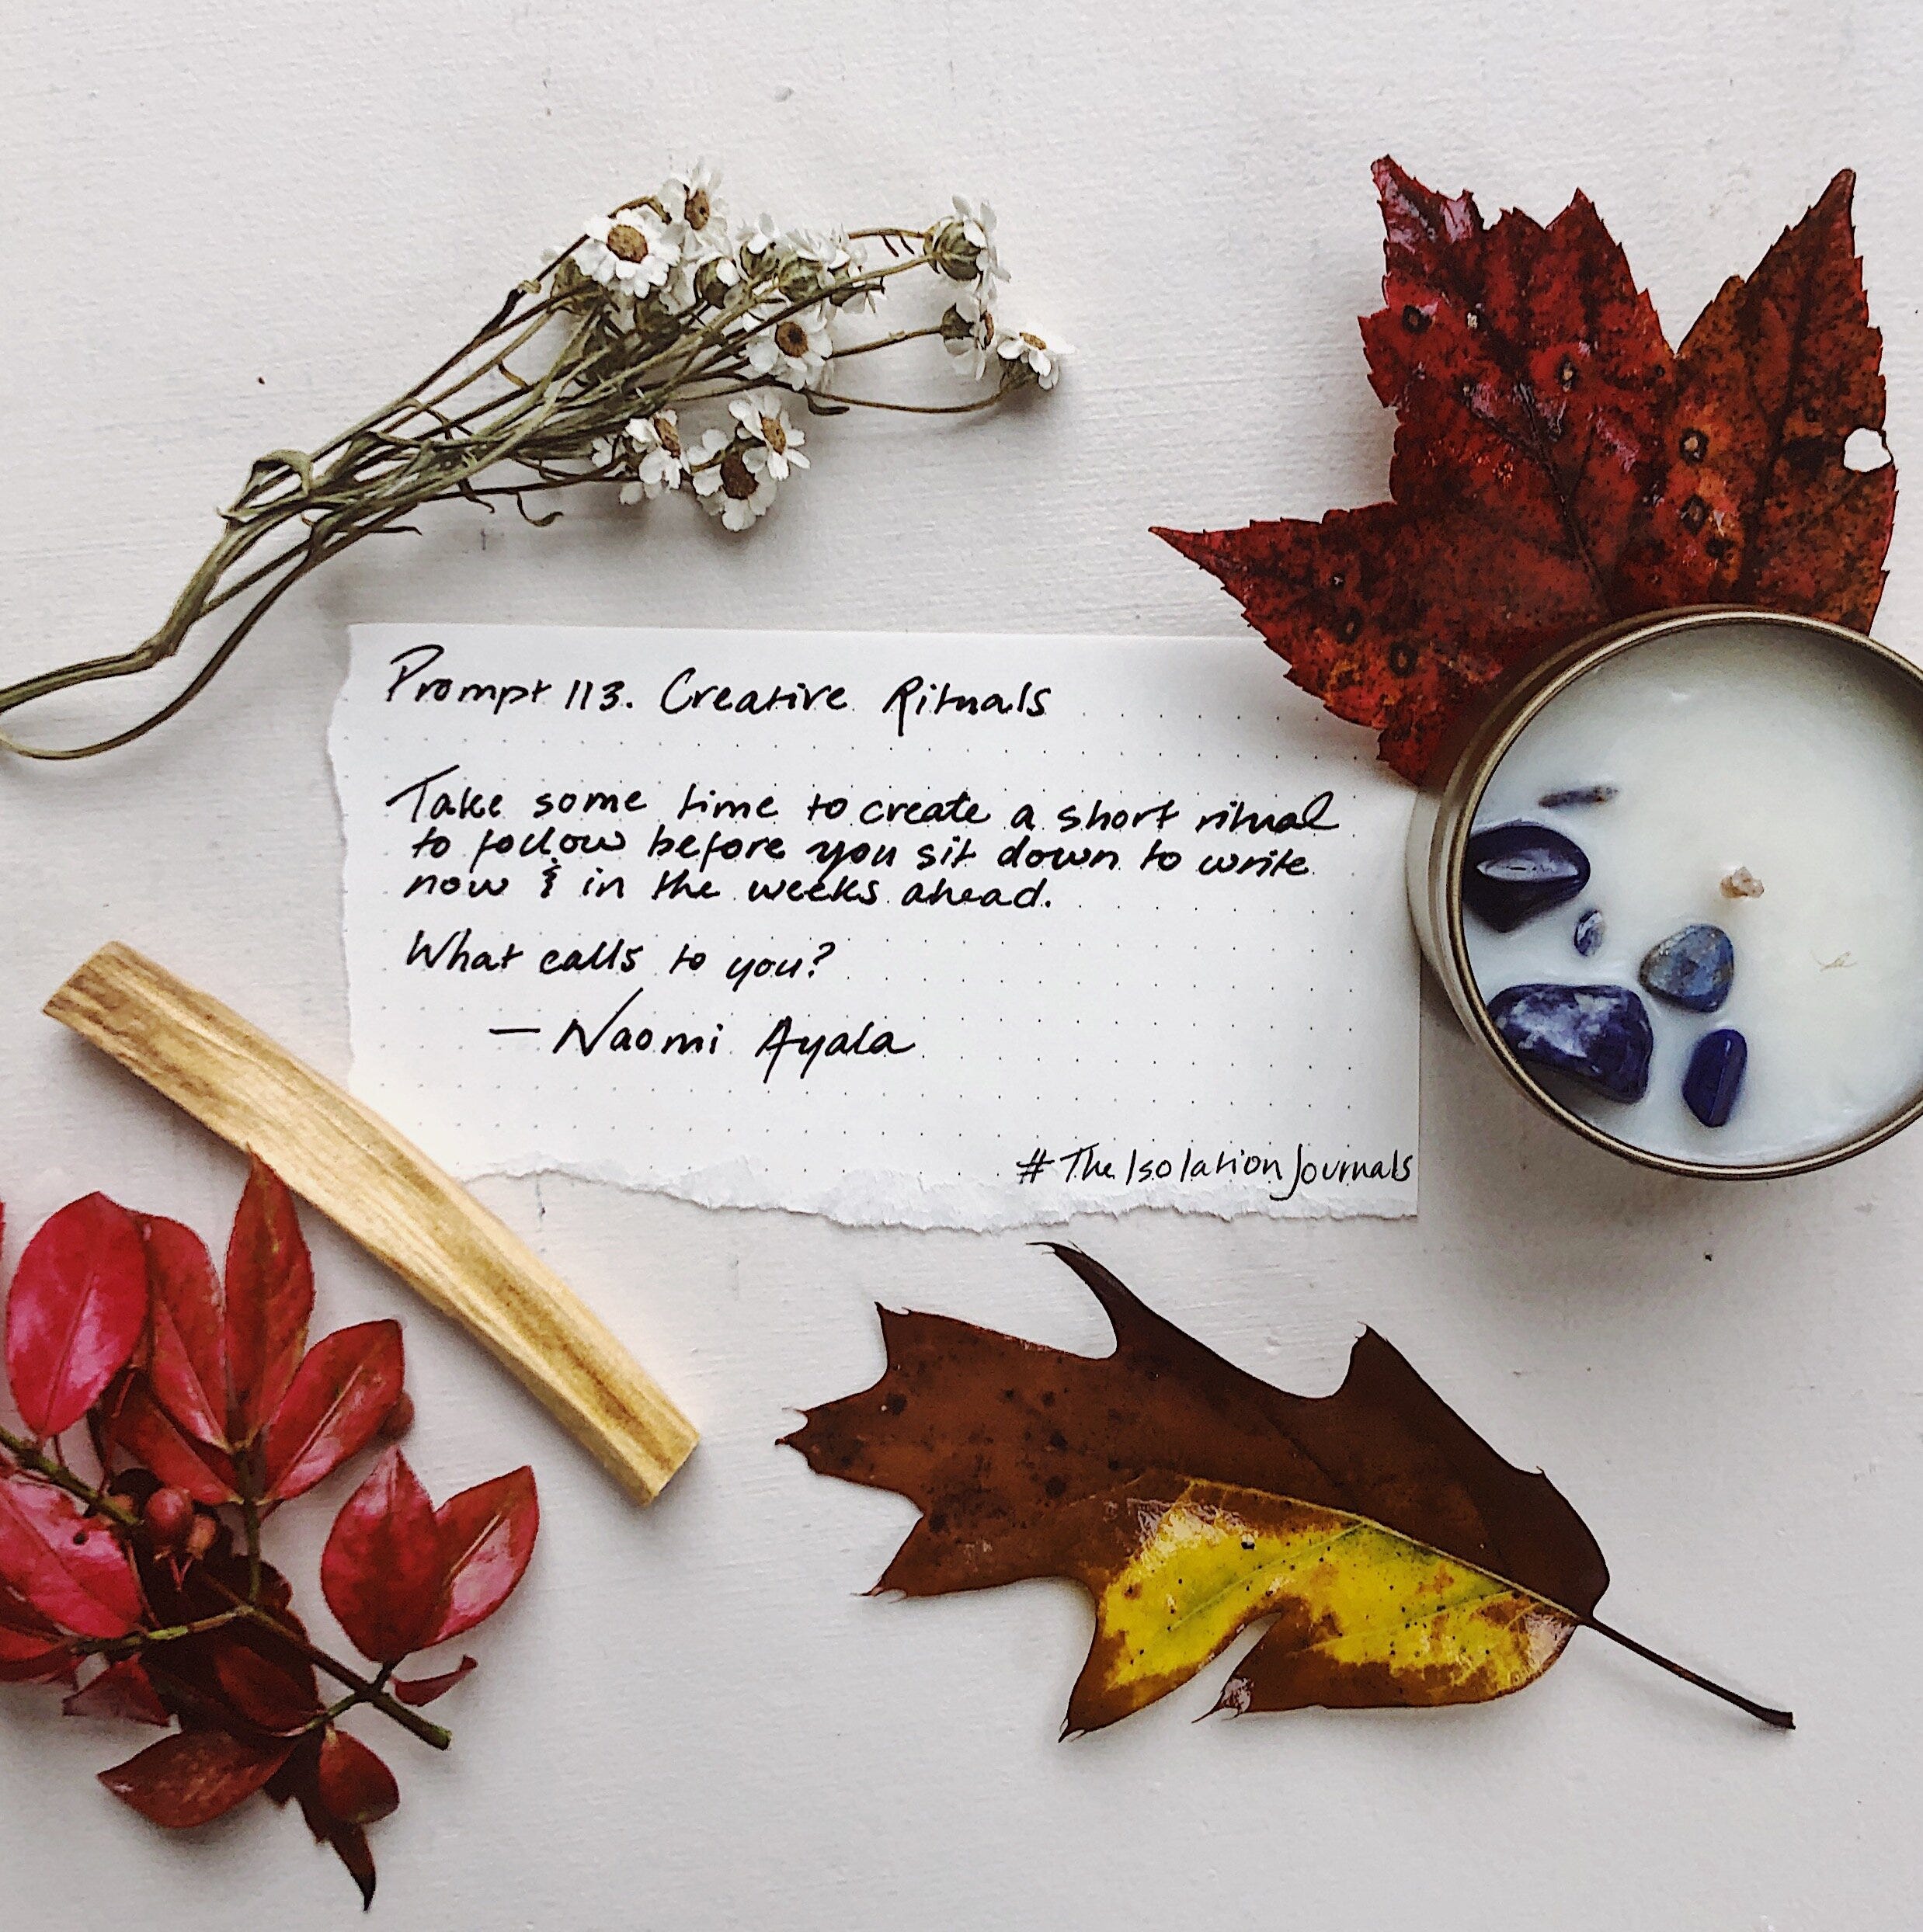 Prompt 113. Creative Rituals
Take some time to create a short ritual
to follow before you sit down to write
now & in the weeks ahead.
What calls to you?
— Naomi Ayala
#TheIsolationJournals